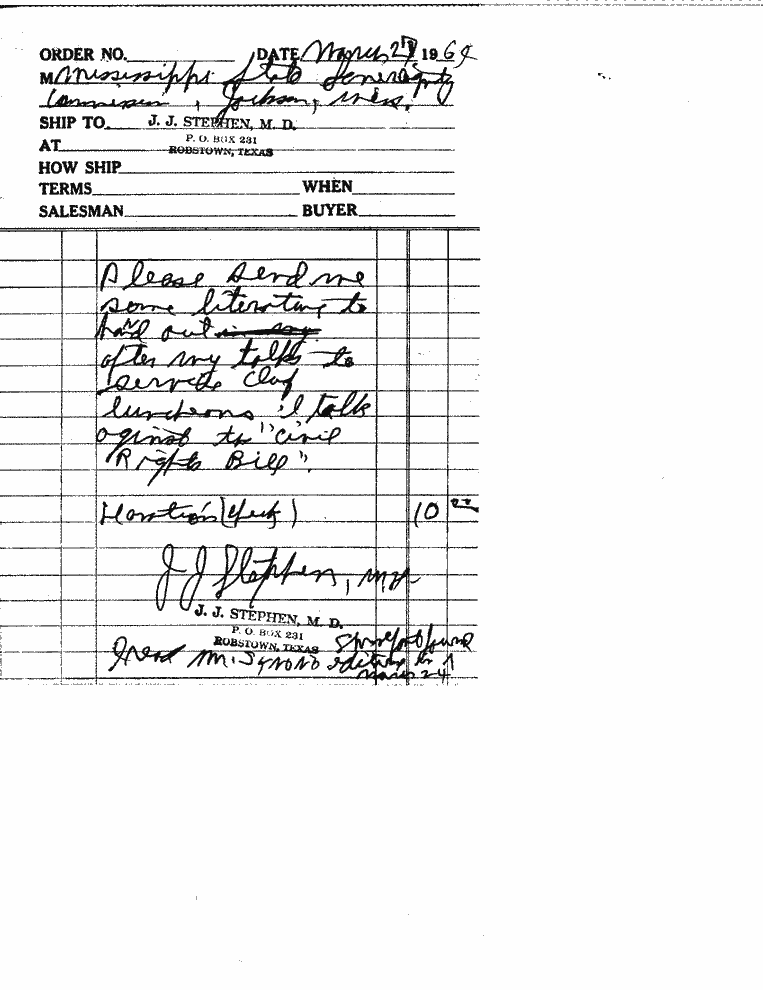 ORDER NO. DATE March 27 1964
M Mississippi State Sovereignty
Commission, Jackson, Miss.
SHIP TO J. J. STEPHEN, M. D.
P. O. BOX 231
AT ROBSTOWN, TEXAS
HOW SHIP
TERMS WHEN
SALESMAN BUYER
Please send me
some literature to
hand out
after my talks to
service club
luncheons I talk
against the "Civil
Rights Bill".
Donation (check) 10 00
J J Stephen, M.D.
J. J. STEPHEN, M. D.
P. O. BOX 231
ROBSTOWN, TEXAS
I read Mr.
March 24